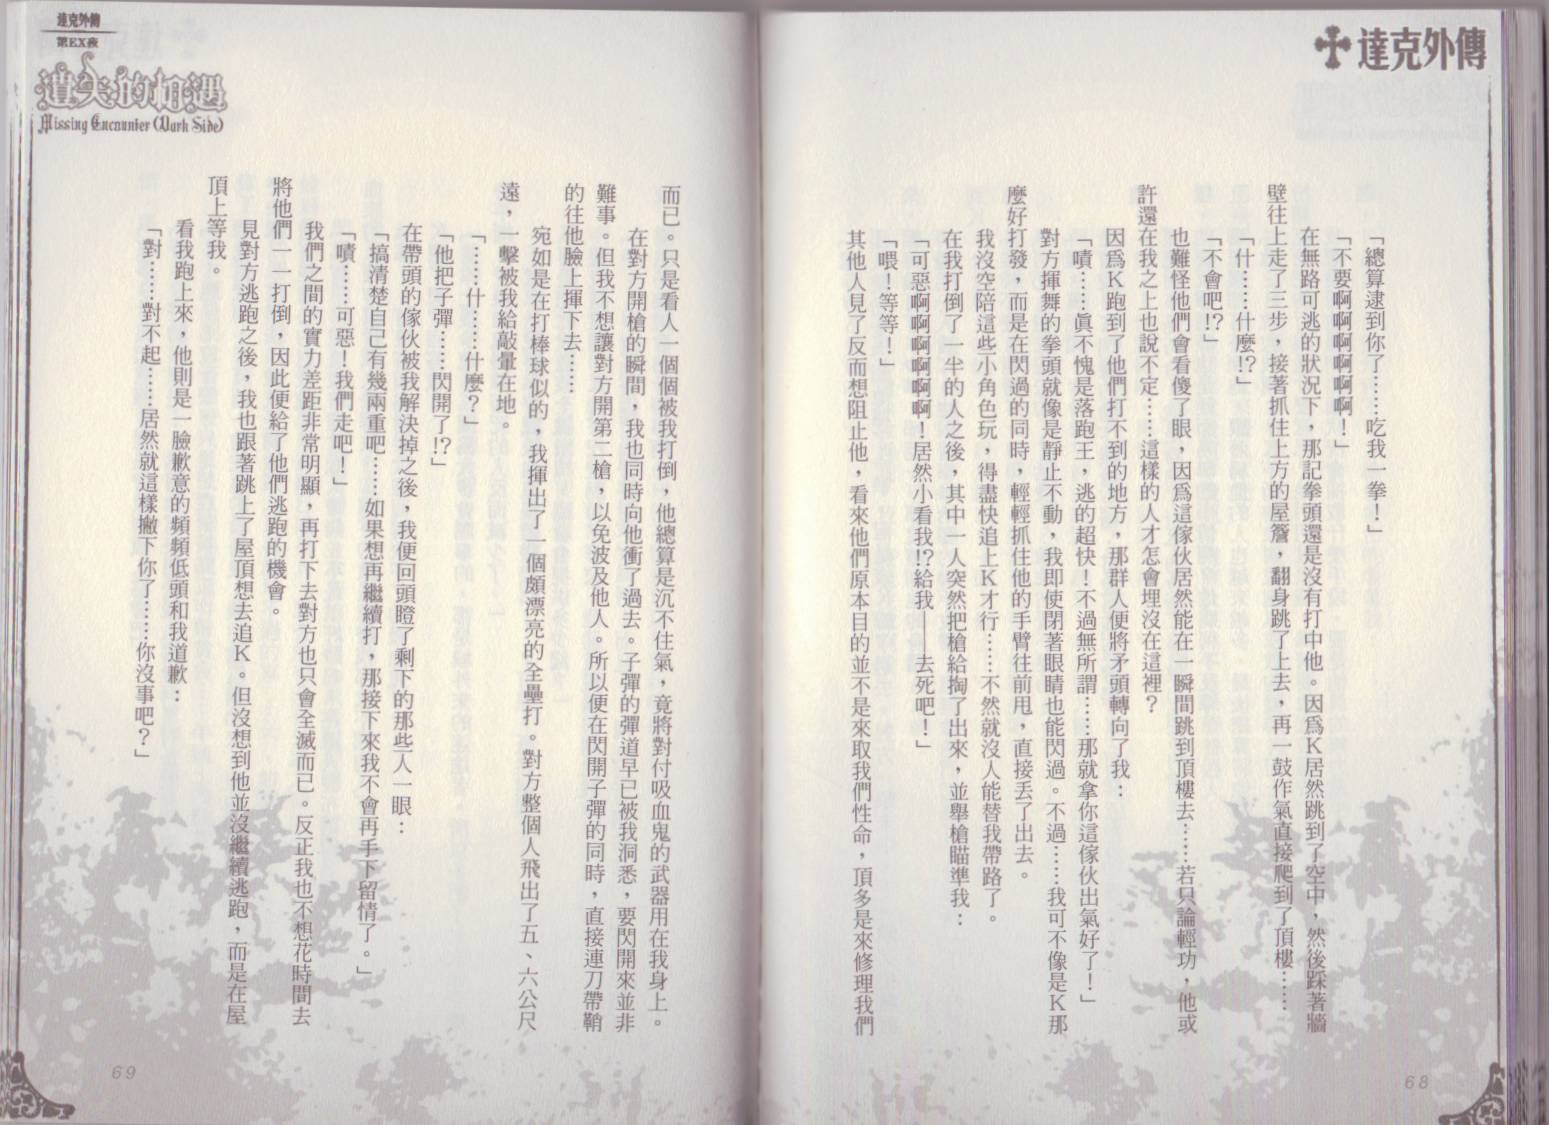 達克外傳
「總算逮到你了……吃我一拳！」
「不要啊啊啊啊啊啊！」
在無路可逃的狀況下，那記拳頭還是沒有打中他。因為Ｋ居然跳到了空中，然後踩著牆
壁往上走了三步，接著抓住上方的屋簷，翻身跳了上去，再一鼓作氣直接爬到了頂樓……
「什……什麼!?」
「不會吧!?」
也難怪他們會看傻了眼，因為這傢伙居然能在一瞬間跳到頂樓去……若只論輕功，他或
許還在我之上也說不定……這樣的人才怎會埋沒在這裡？
因為Ｋ跑到了他們打不到的地方，那群人便將矛頭轉向了我：
「嘖……真不愧是落跑王，逃的超快！不過無所謂……那就拿你這傢伙出氣好了！」
對方揮舞的拳頭就像是靜止不動，我即使閉著眼睛也能閃過。不過……我可不像是Ｋ那
麼好打發，而是在閃過的同時，輕輕抓住他的手臂往前甩，直接丟了出去。
我沒空陪這些小角色玩，得盡快追上Ｋ才行……不然就沒人能替我帶路了。
在我打倒了一半的人之後，其中一人突然把槍給掏了出來，並舉槍瞄準我：
「可惡啊啊啊啊啊啊！居然小看我!?給我——去死吧！」
「喂！等等！」
其他人見了反而想阻止他，看來他們原本目的並不是來取我們性命，頂多是來修理我們
68
達克外傳
第EX夜
遺失的相遇
Missing Encounter (Dark Side)
而已。只是看人一個個被我打倒，他總算是沉不住氣，竟將對付吸血鬼的武器用在我身上。
在對方開槍的瞬間，我也同時向他衝了過去。子彈的彈道早已被我洞悉，要閃開來並非
難事。但我不想讓對方開第二槍，以免波及他人。所以便在閃開子彈的同時，直接連刀帶鞘
的往他臉上揮下去……
宛如是在打棒球似的，我揮出了一個頗漂亮的全壘打。對方整個人飛出了五、六公尺
遠，一擊被我給敲暈在地。
「……什……什麼？」
「他把子彈……閃開了!?」
在帶頭的傢伙被我解決掉之後，我便回頭瞪了剩下的那些人一眼：
「搞清楚自己有幾兩重吧……如果想再繼續打，那接下來我不會再手下留情了。」
「嘖……可惡！我們走吧！」
我們之間的實力差距非常明顯，再打下去對方也只會全滅而已。反正我也不想花時間去
將他們一一打倒，因此便給了他們逃跑的機會。
見對方逃跑之後，我也跟著跳上了屋頂想去追Ｋ。但沒想到他並沒繼續逃跑，而是在屋
頂上等我。
看我跑上來，他則是一臉歉意的頻頻低頭和我道歉：
「對……對不起……居然就這樣撇下你了……你沒事吧？」
69